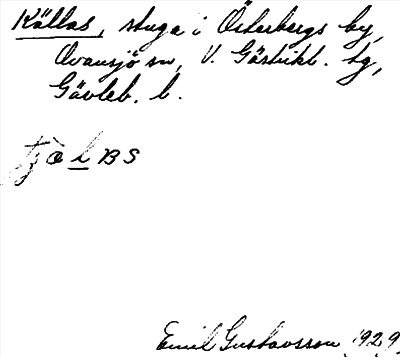 Källas, stuga i Österbergs by,
Ovansjö sn, V. Gästrikl. tg,
Gävleb. l.
Emil Gustavsson 1929